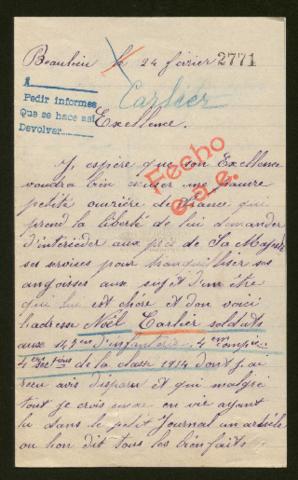 Beaulieu le 24 février 2771
A
Pedir informes
Que se hace asi
Devolver
Carlier
Excellence.
Fecho
c.s.e.
J'espère que son Excellence
voudra bien excuser une pauvre
petite ouvrière de France qui
prend la liberté de lui demander
d'intercéder aux près de Sa Majesté
ses services pour tranquilliser ses
angoisses aux sujet d'un être
qui lui est chère et don voici
l'adresse Noël Carlier soldats
aux 45eme d'infanterie 4em compie
4em sections de la classe 1914 dont j'ai
reçu avis disparu et qui malgré
tout je crois encore en vie ayant
lu dans le petit Journal un article
ou l'on dit tous les bienfaits